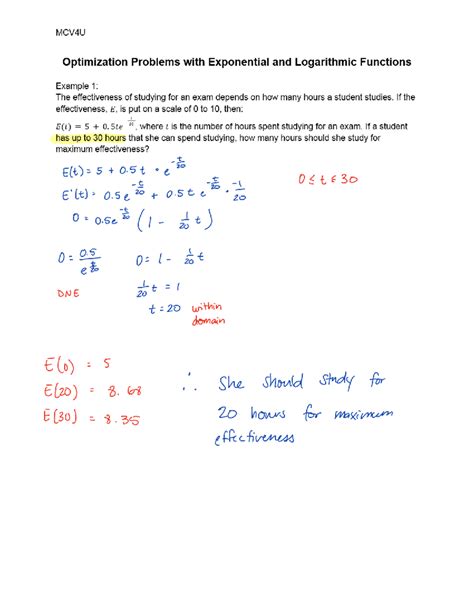 MCV4U
Optimization Problems with Exponential and Logarithmic Functions
Example 1:
The effectiveness of studying for an exam depends on how many hours a student studies. If the
effectiveness, E, is put on a scale of 0 to 10, then:
E(t) = 5 + 0.5te^(-t/20), where t is the number of hours spent studying for an exam. If a student
has up to 30 hours that she can spend studying, how many hours should she study for
maximum effectiveness?
E(t) = 5 + 0.5t • e^(-t/20)
0 ≤ t ≤ 30
E'(t) = 0.5e^(-t/20) + 0.5t e^(-t/20) • -1/20
0 = 0.5e^(-t/20) (1 - 1/20 t)
0 = 0.5/e^(t/20)   0 = 1 - 1/20 t
DNE   1/20 t = 1
t = 20 within
domain
E(0) = 5
E(20) = 8.68
E(30) = 8.35
∴ She should study for
20 hours for maximum
effectiveness